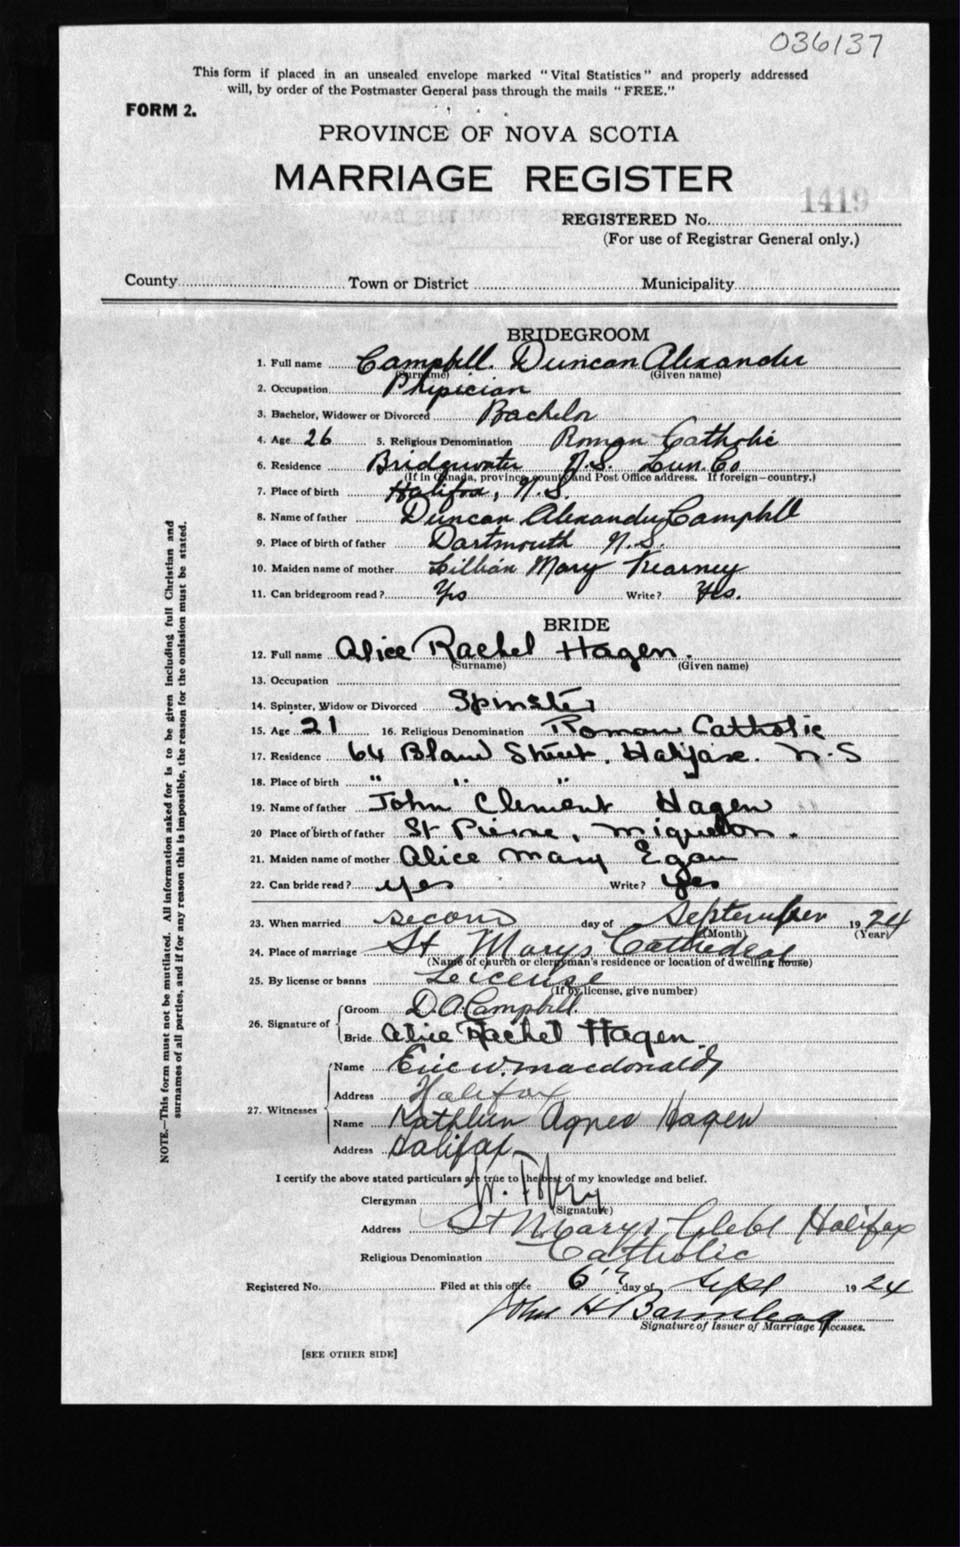 036137
This form if placed in an unsealed envelope marked "Vital Statistics" and properly addressed
will, by order of the Postmaster General pass through the mails "FREE."
FORM 2.
PROVINCE OF NOVA SCOTIA
MARRIAGE REGISTER
REGISTERED No. 1419
(For use of Registrar General only.)
County Town or District Municipality
BRIDEGROOM
1. Full name Campbell. Duncan Alexander
(Surname) (Given name)
2. Occupation Physician
3. Bachelor, Widower or Divorced Bachelor
4. Age 26 5. Religious Denomination Roman Catholic
6. Residence Bridgewater N.S. Lun. Co
(If in Canada, province, county and Post Office address. If foreign—country.)
7. Place of birth Halifax, N.S.
8. Name of father Duncan Alexander Campbell
9. Place of birth of father Dartmouth N.S.
10. Maiden name of mother Lillian Mary Kearney
11. Can bridegroom read? Yes Write? Yes.
BRIDE
12. Full name Alice Rachel Hagen.
(Surname) (Given name)
13. Occupation
14. Spinster, Widow or Divorced Spinster
15. Age 21 16. Religious Denomination Roman Catholic
17. Residence 64 Street. Halifax. N.S
18. Place of birth " " "
19. Name of father John Clement Hagen
20 Place of birth of father St Pierre, Miquelon.
21. Maiden name of mother Alice Mary Egan
22. Can bride read? yes Write? yes
23. When married second day of September 1924
(Month) (Year)
24. Place of marriage St Marys Cathedral
(Name of church or clergyman's residence or location of dwelling house)
25. By license or banns Leicense
(If by license, give number)
26. Signature of Groom D.A. Campbell.
Bride Alice Rachel Hagen.
27. Witnesses Name Eric W. Macdonald
Address Halifax
Name Kathleen Agnes Hagen
Address Halifax
I certify the above stated particulars are true to the best of my knowledge and belief.
Clergyman
(Signature)
Address St Marys Glebe Halifax
Religious Denomination Catholic
Registered No. Filed at this office 6th day of Sept 1924
John H
Signature of Issuer of Marriage Licenses.
[SEE OTHER SIDE]
NOTE.—This form must not be mutilated. All information asked for is to be given including full Christian and
surnames of all parties, and if for any reason this is impossible, the reason for the omission must be stated.